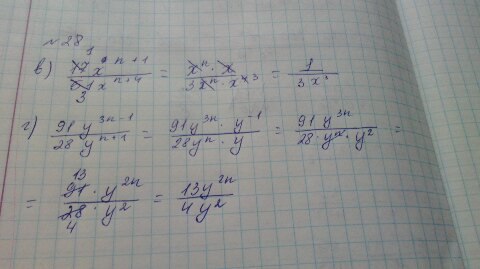 № 28
в) 17x^{n+1} / 51x^{n+4} = x^n · x / 3x^n · x^{4 3} = 1 / 3x^3
г) 91y^{3n-1} / 28y^{n+1} = 91y^{3n} · y^{-1} / 28y^n · y = 91y^{3n} / 28 · y^n · y^2 =
= 91 · y^{2n} / 28 · y^2 = 13y^{2n} / 4y^2